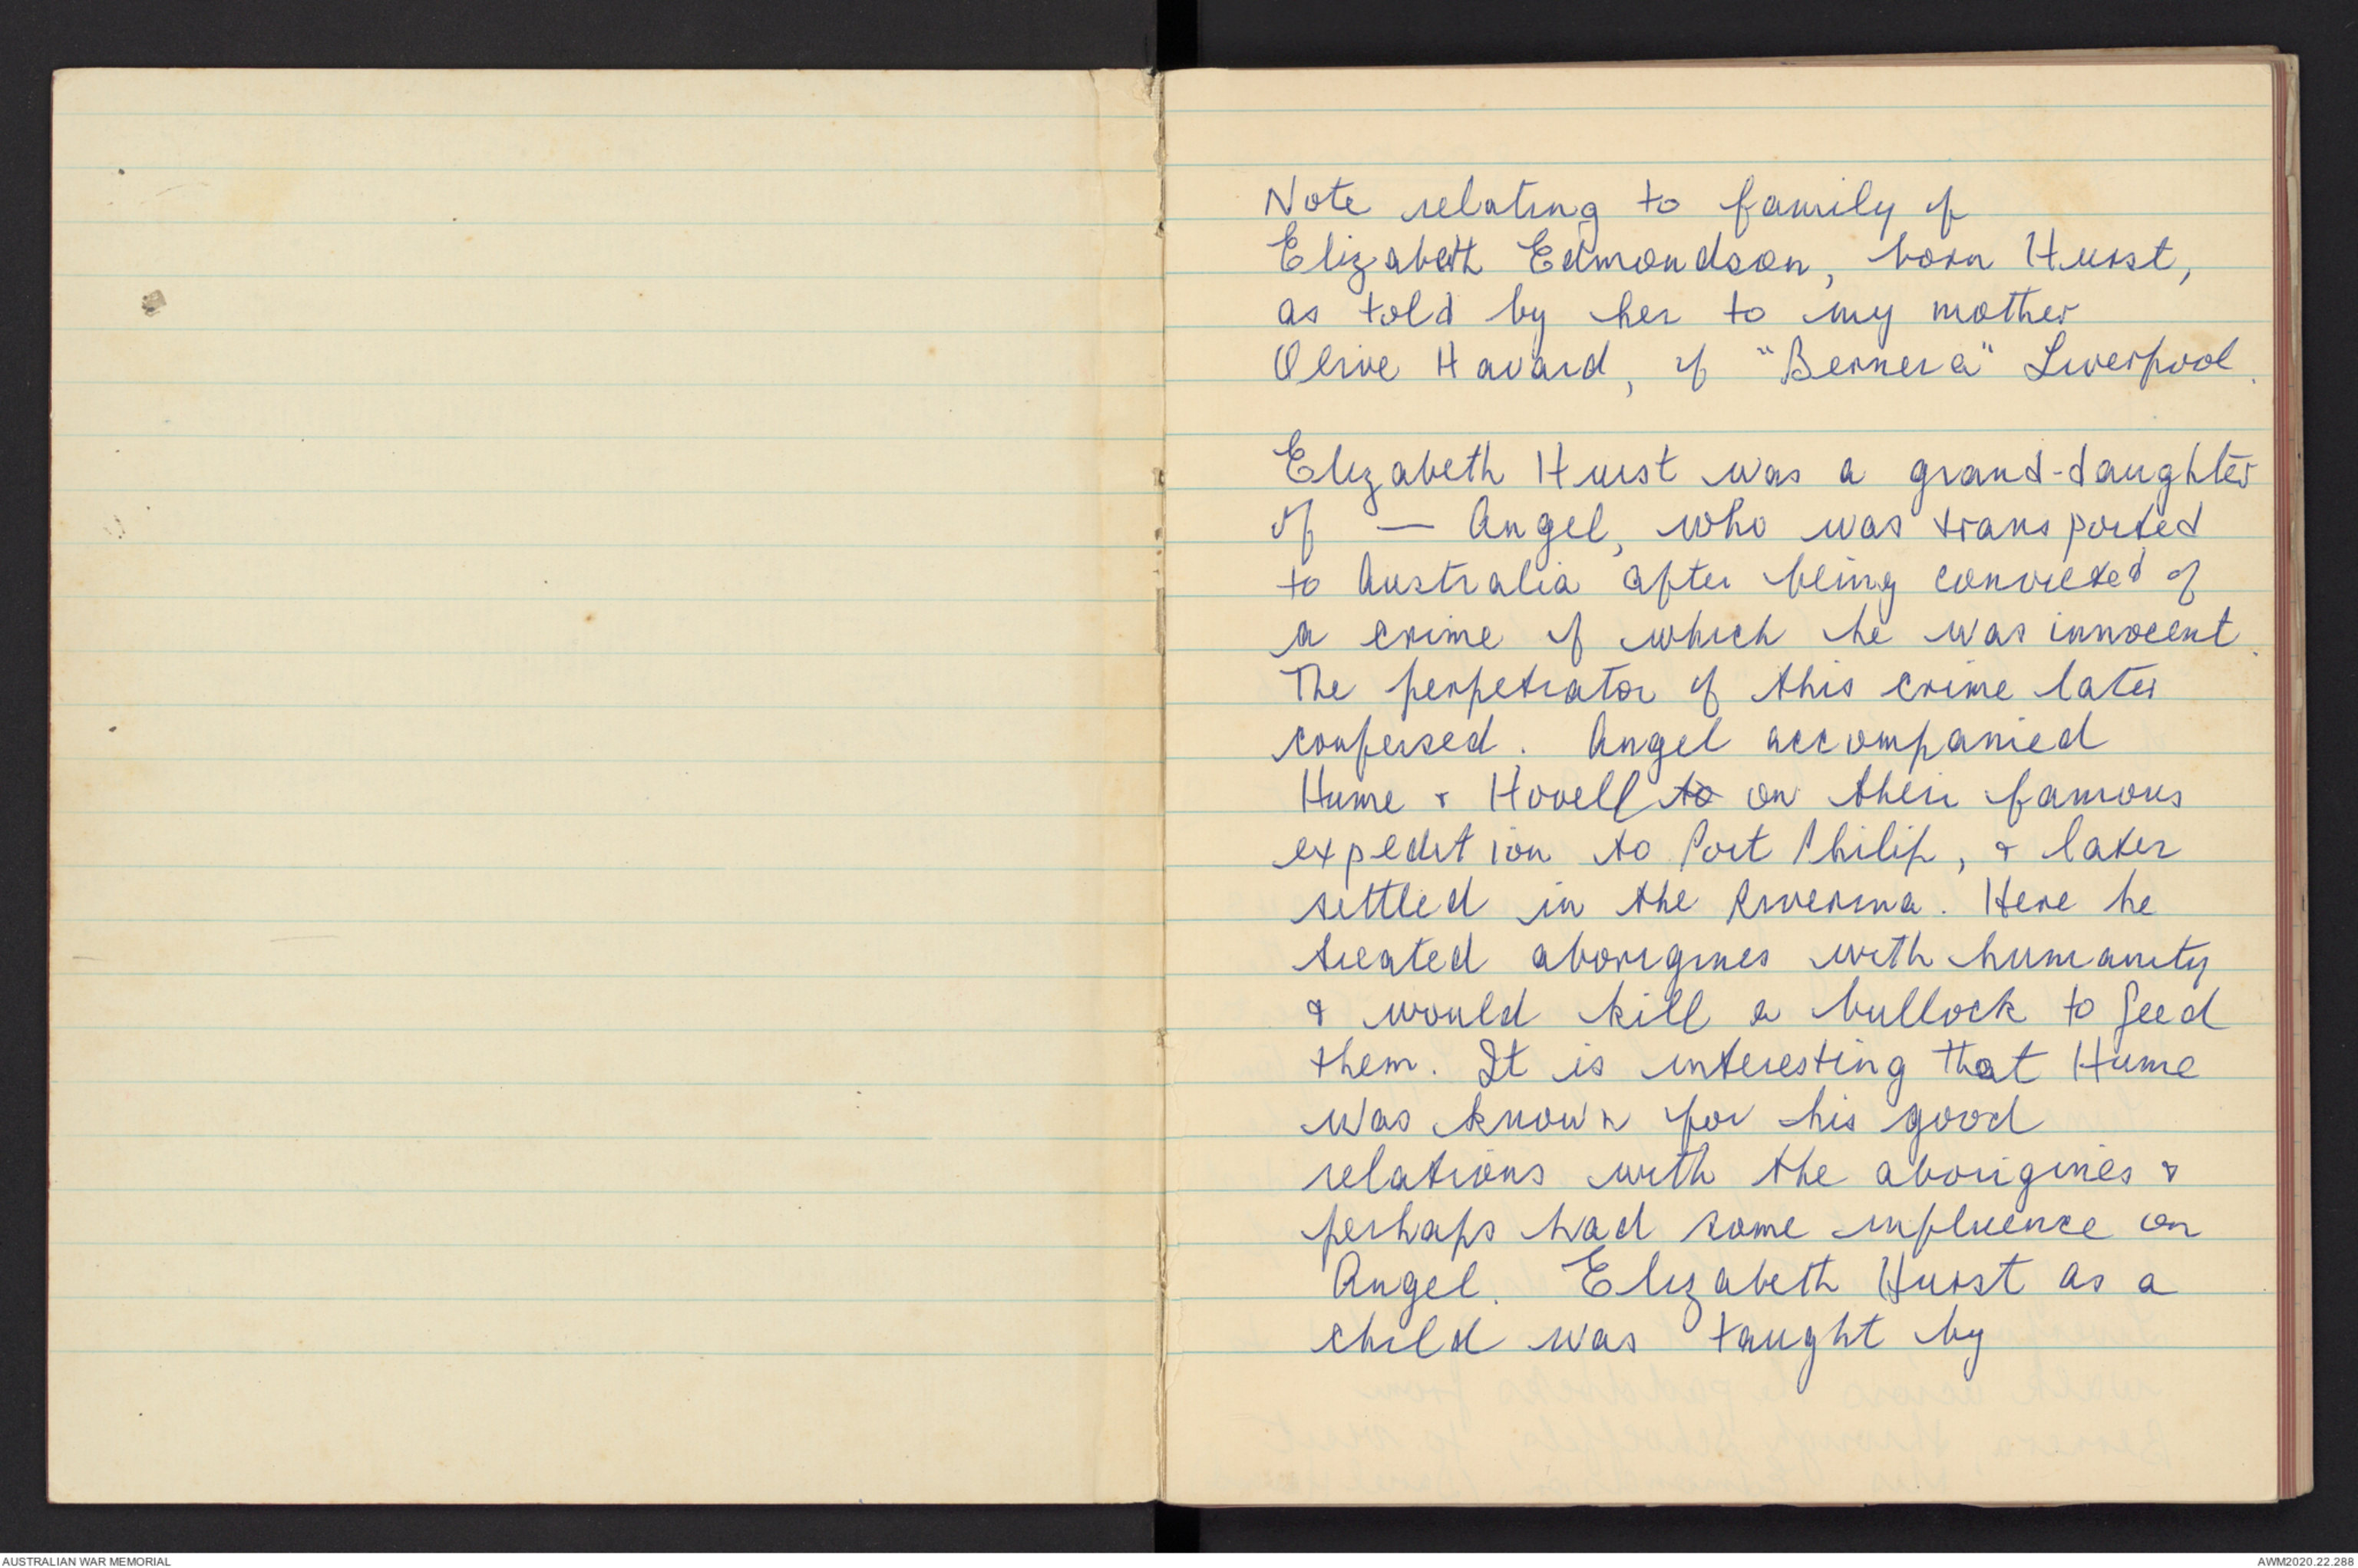 Note relating to family of
Elizabeth Edmondson, born Hurst,
as told by her to my mother
Olive Havard, of "Bernera" Liverpool.
Elizabeth Hurst was a grand-daughter
of — Angel, who was transported
to Australia after being convicted of
a crime of which he was innocent.
The perpetrator of this crime later
confessed. Angel accompanied
Hume & Hovell to on their famous
expedition to Port Philip, & later
settled in the Riverina. Here he
treated aborigines with humanity
& would kill a bullock to feed
them. It is interesting that Hume
was known for his good
relations with the aborigines &
perhaps had some influence on
Angel. Elizabeth Hurst as a
child was taught by
AUSTRALIAN WAR MEMORIAL
AWM2020.22.288